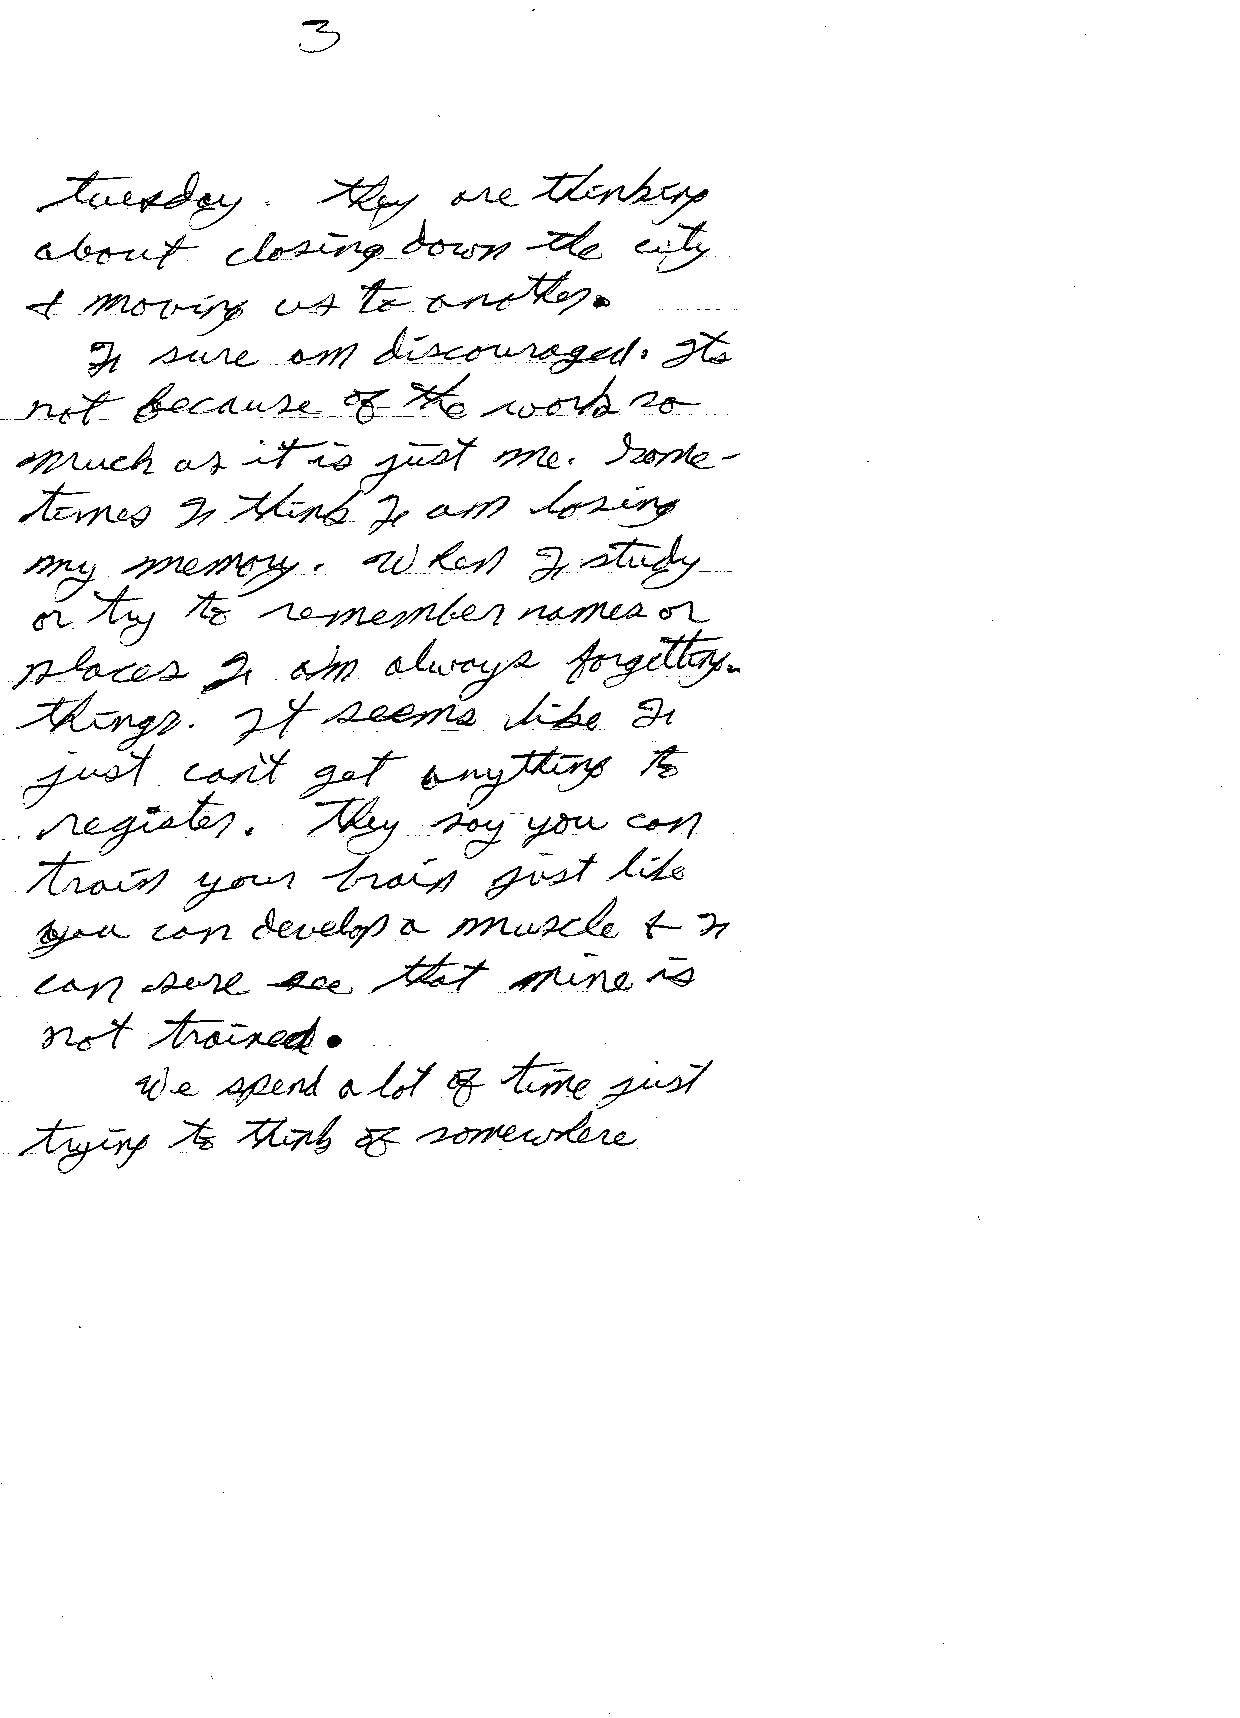 3
tuesday. they are thinking
about closing down the city
& moving us to another.
I sure am discouraged. Its
not because of the work so
much as it is just me. Some-
times I think I am losing
my memory. When I study
or try to remember names or
places I am always forgetting
things. It seems like I
just can't get anything to
register. They say you can
train your brain just like
you can develop a muscle & I
can sure see that mine is
not trained.
We spend a lot of time just
trying to think of somewhere